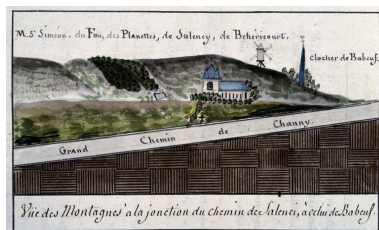 M. St Siméon. du Fau, des Planettes, de Salency, de Béhéricourt.
Clocher de Babeuf.
Grand Chemin de Chauny.
Vüe des Montagnes a la jonction du chemin de Salenci, à celui de Babeuf.